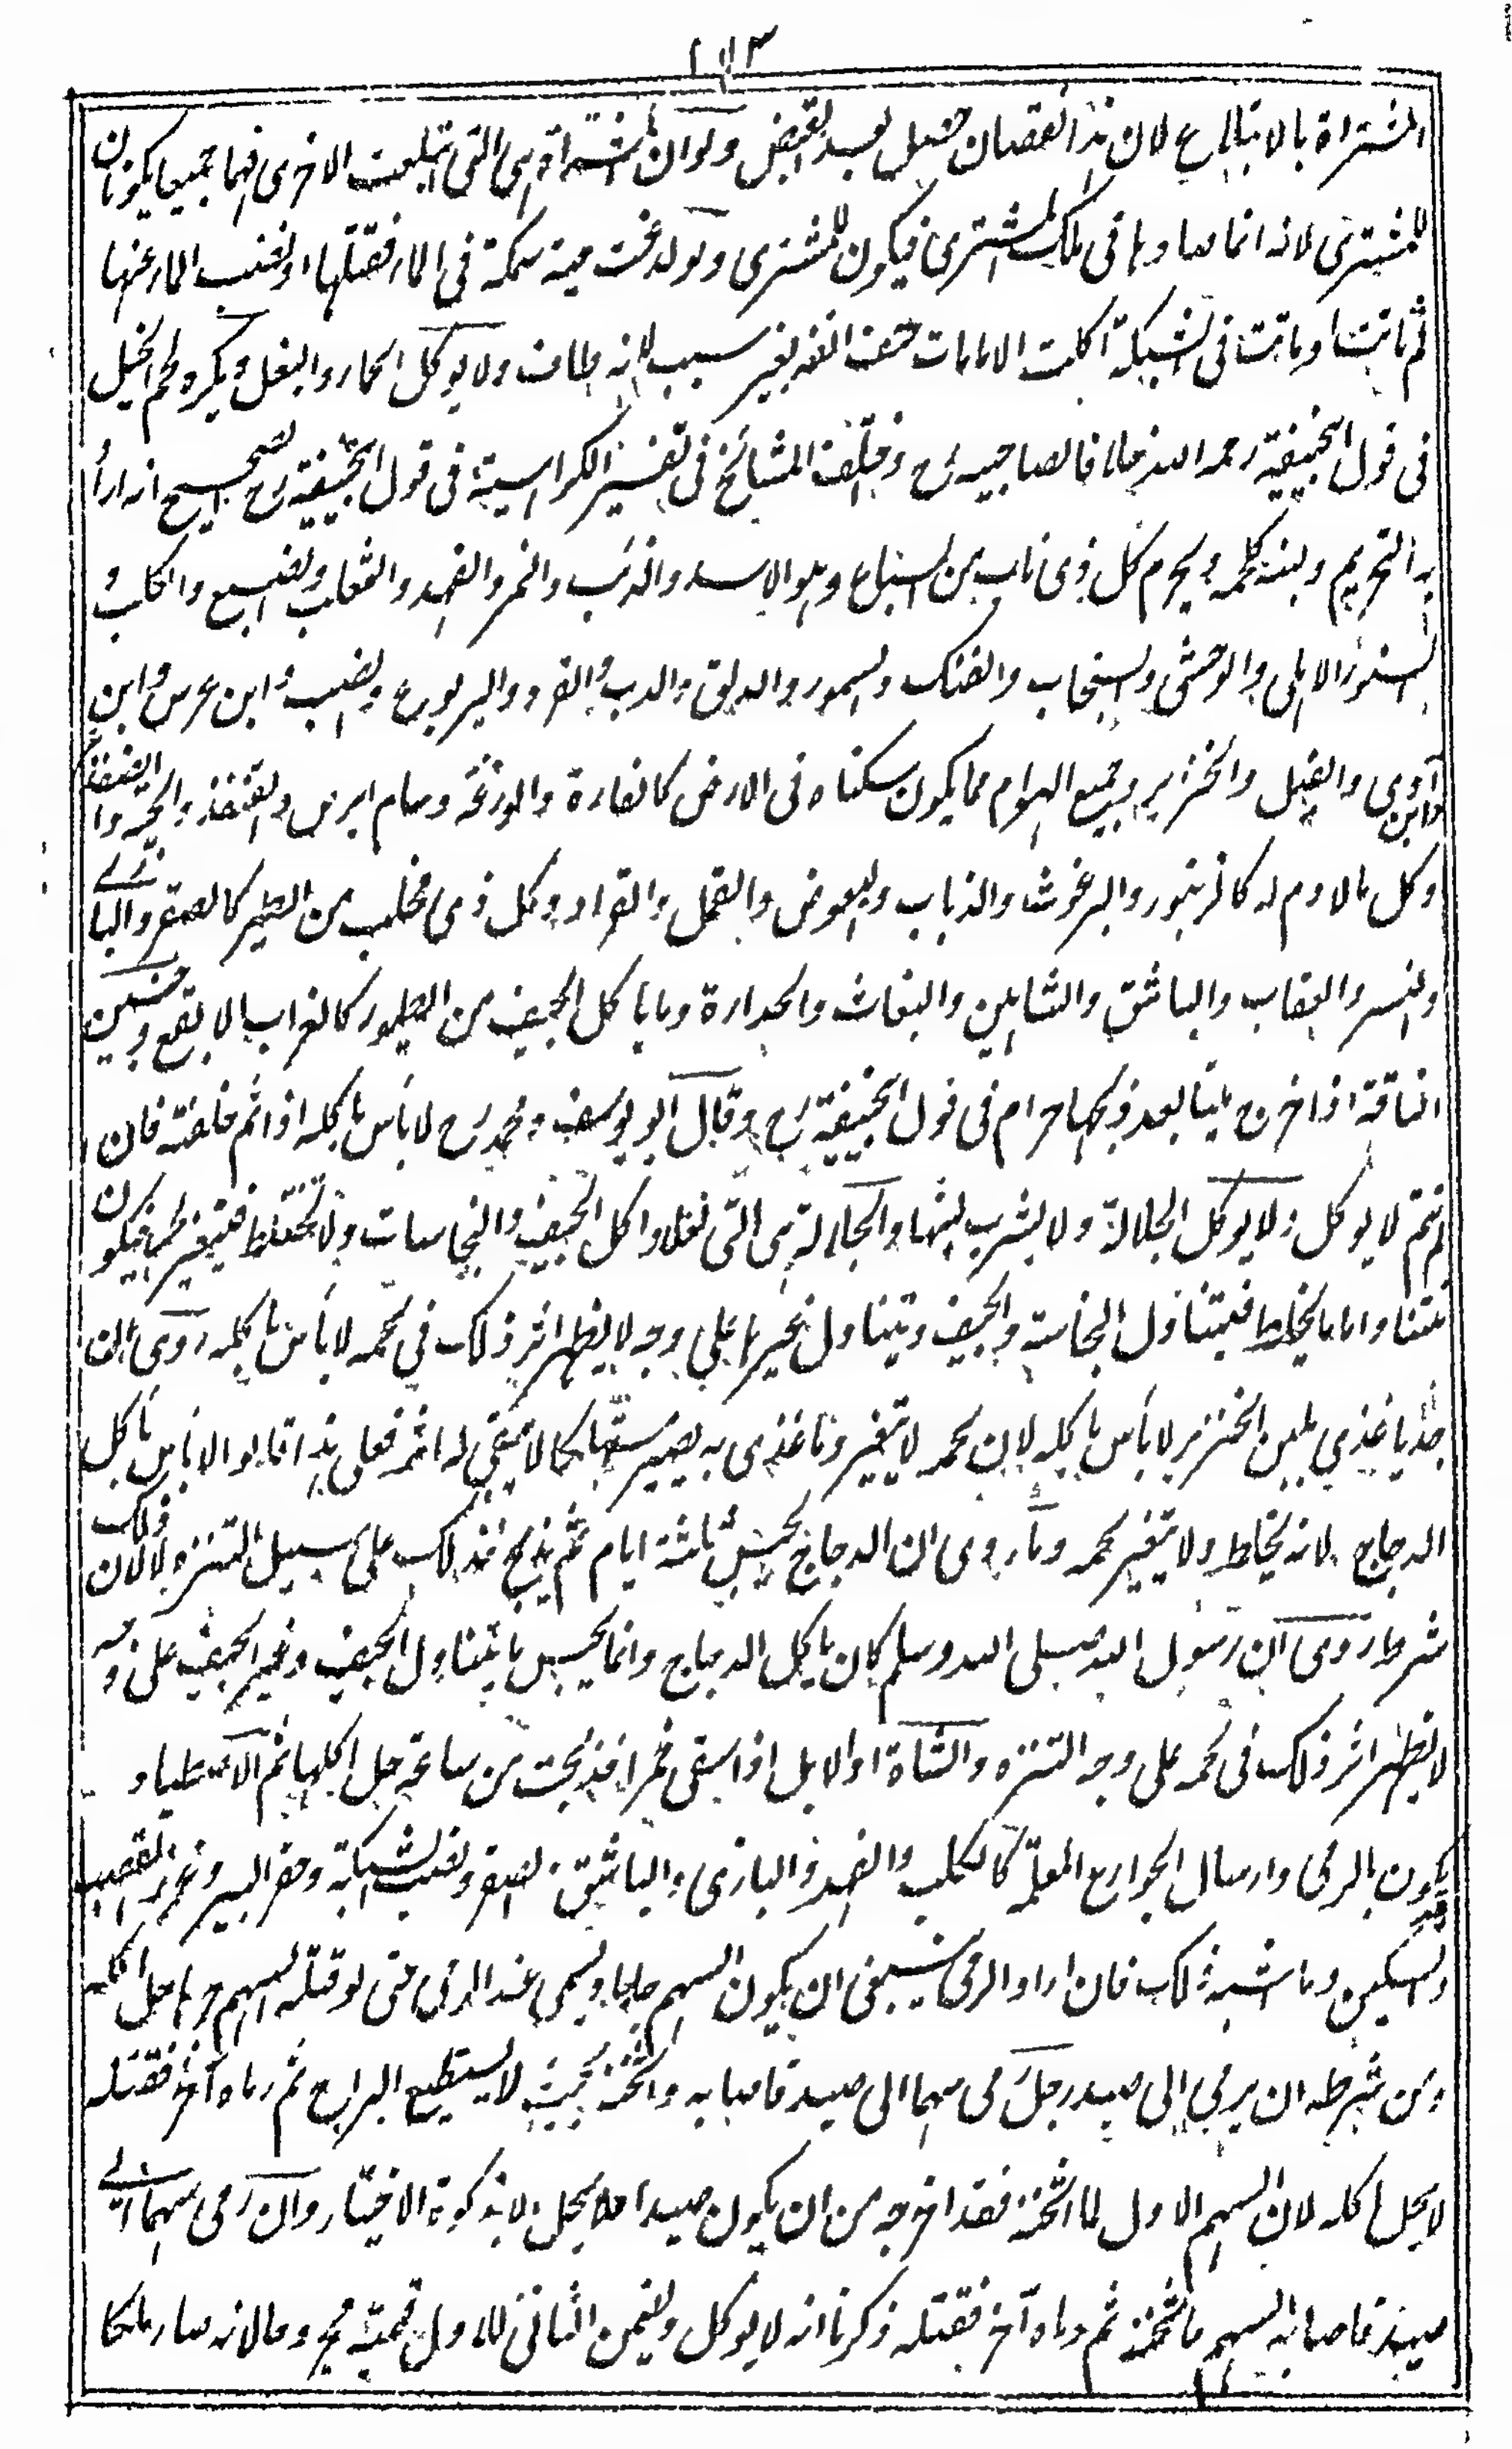 المشتراة بالابتلاع لان هذا النقصان حصل بعد القبض ولو ان المشتراة هي التي ابتلعت الاخرى فهما جميعا يكونان
للمشتري لانه انما صادها في ملك المشتري فيكون للمشتري ولو لدغت حية سمكة في الماء فقتلتها او نضب الماء عنها
ثم ماتت او ماتت في الشبكة اكلت الا ما مات حتف انفه بغير سبب لانه طاف ولا يوكل الحمار والبغل ويكره لحم الخيل
في قول ابيحنيفة رحمه الله خلافا لصاحبيه رح واختلف المشائخ في تفسير الكراهية في قول ابيحنيفة رح الصحيح انه اراد
به التحريم ولبنه كلحمه ويحرم كل ذي ناب من السباع وهو الاسد والذئب والنمر والفهد والثعلب والضبع والكلب و
السنور الاهلي والوحشي والسنجاب والفنك والسمور والدلق والدب والقرد واليربوع والضب وابن عرس وابن
آوى والفيل والخنزير وجميع الهوام مما يكون سكناه في الارض كالفارة والوزغة وسام ابرص والقنفذ والحية والضفدع
وكل ما لا دم له كالزنبور والبرغوث والذباب والبعوض والقمل والقراد وكل ذي مخلب من الطير كالصقر والبازي
والنسر والعقاب والباشق والشاهين والبغاث والحدارة وما ياكل الجيف من الطيور كالغراب الابقع وجنين
الناقة اذا خرج ميتا بعد ذبحها حرام في قول ابيحنيفة رح وقال ابو يوسف ومحمد رح لا بأس باكله اذا تم خلقته فان
لم تتم لا يوكل ولا يوكل الجلالة ولا يشرب لبنها والجلالة هي التي تعتاد اكل الجيف والنجاسات ولا تختلط فيتغير لحمها فيكون
منتنا واما ما يخلط فيتناول النجاسة والجيف ويتناول غيرها على وجه لا يظهر اثر ذلك في لحمه لا بأس باكله روي ان
جديا غذي بلبن الخنزير لا بأس باكله لان لحمه لا يتغير وما غذي به يصير مستهلكا لا يبقى له اثر فعلى هذا قالوا لا بأس باكل
الدجاج لانه يخلط ولا يتغير لحمه وما روي ان الدجاج يحبس ثلثة ايام ثم يذبح فذلك على سبيل التنزه لا لان ذلك
شرط روى ان رسول الله صلى الله وسلم كان ياكل الدجاج وانما يحبس ما يتناول الجيف وغير الجيف على وجه
لا يظهر اثر ذلك في لحمه على وجه التنزه والشاة او الابل اذا سقى خمرا فذبحت من ساعته حل اكلها ثم الاصطياد
قد يكون بالرمي وارسال الجوارح المعلمة كالكلب والفهد والبازي والباشق والصقر ونصب الشبكة وحفر البير وغرز القصب
والسكين وما اشبه ذلك فان اراد الرمي ينبغي ان يكون السهم جارحا ويسمي عند الرمي حتى لو قتله السهم جرحا حل اكله
ومن شرطه ان يرمي الى صيد رجل رمى سهما الى صيد فاصابه واثخنه بحيث لا يستطيع البراح ثم رماه آخر فقتله
لا يحل اكله لان السهم الاول لما اثخنه فقد اخرجه من ان يكون صيدا فلا يحل الا بذكوة الاختيار وان رمى سهما الى
صيد فاصابه السهم فاثخنه ثم رماه آخر فقتله ذكرنا انه لا يوكل ويضمن الثاني للاول قيمته مجروحا لانه صار ملكا